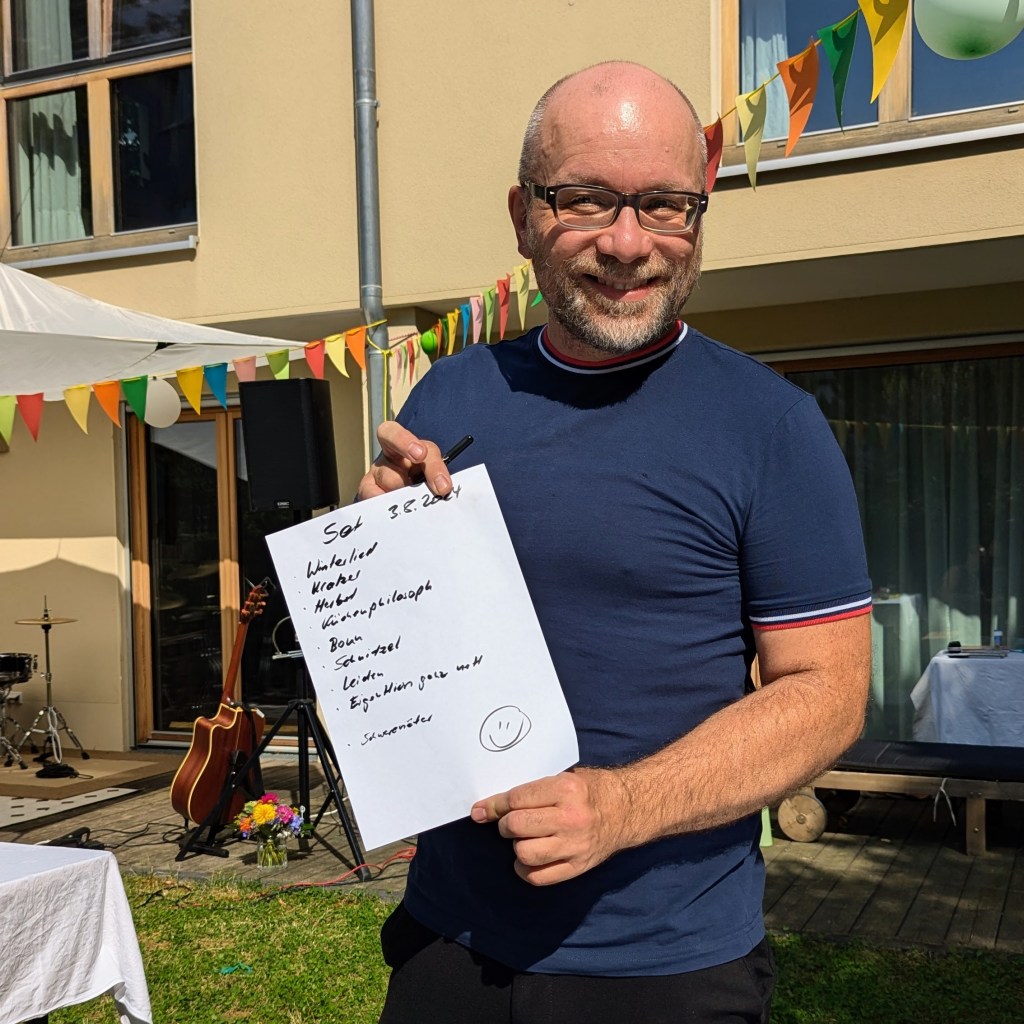 Set 3.8.2024
· Winterlied
· Kratzer
· Herbst
· Küchenphilosoph
· Bonn
· Schnitzel
· Leiden
· Eigentlich ganz nett
· Schwerenöter